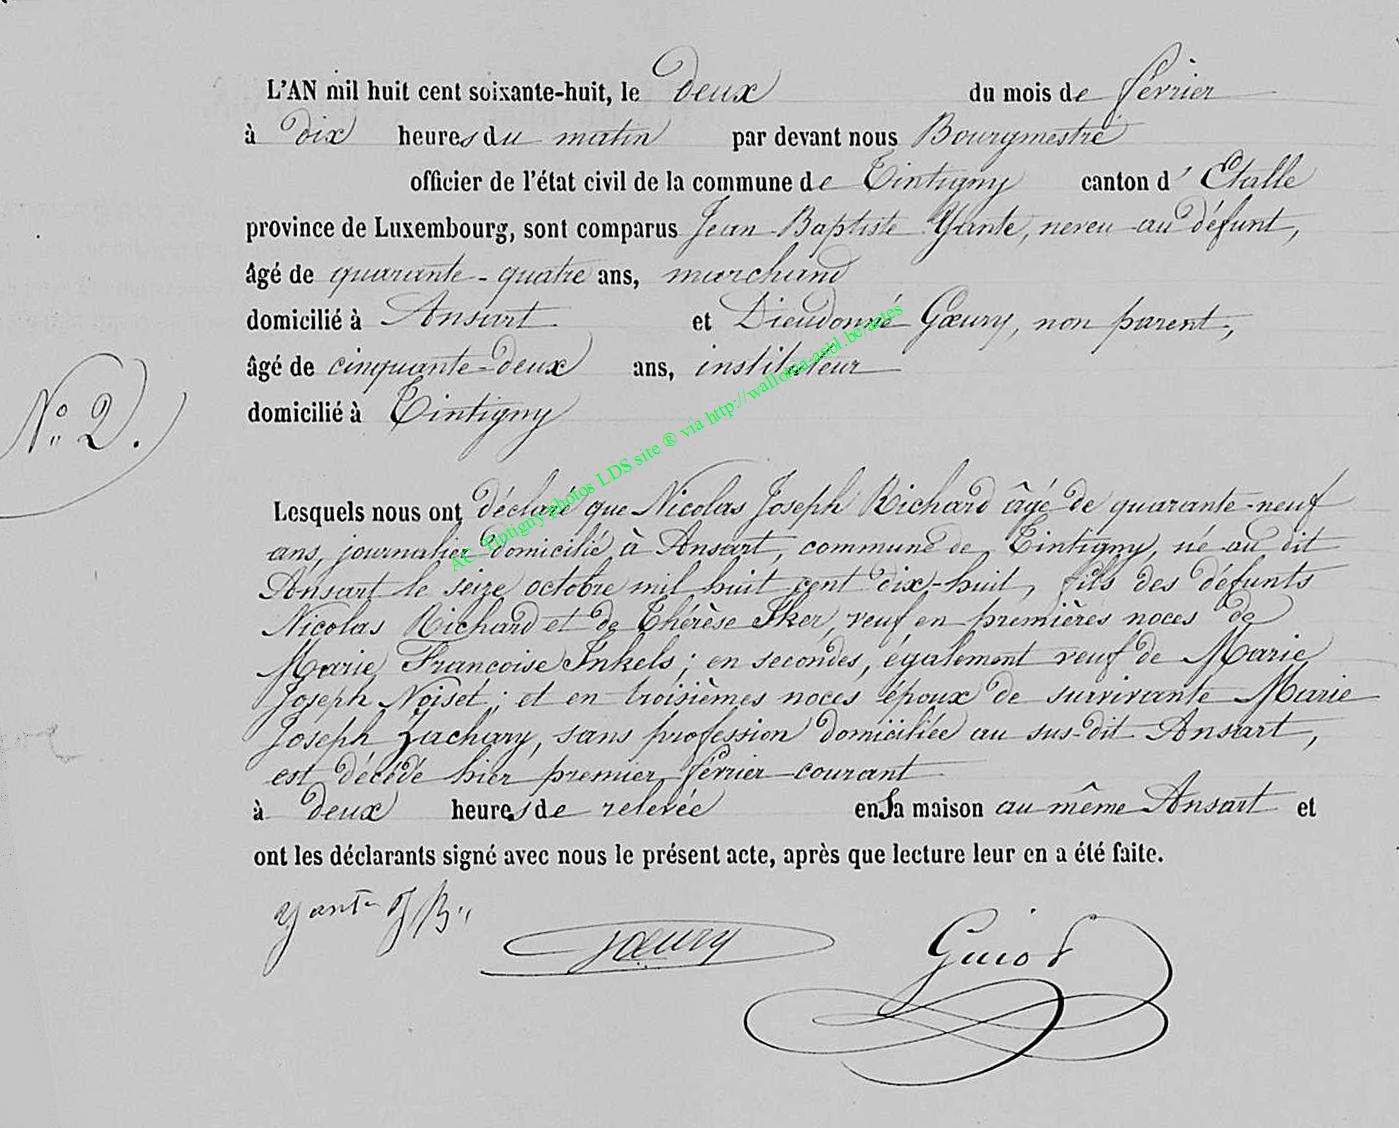 L'AN mil huit cent soixante-huit, le deux du mois de février
à dix heures du matin par devant nous Bourgmestre
officier de l'état civil de la commune de Tintigny canton d' Etalle
province de Luxembourg, sont comparus Jean Baptiste Yante, neveu au défunt,
âgé de quarante-quatre ans, marchand
domicilié à Ansart et Dieudonné Gœury, non parent,
âgé de cinquante-deux ans, instituteur
domicilié à Tintigny
N° 2.
Lesquels nous ont déclaré que Nicolas Joseph Richard âgé de quarante-neuf
ans, journalier domicilié à Ansart, commune de Tintigny, né au dit
Ansart le seize octobre mil huit cent dix-huit, fils des défunts
Nicolas Richard et de Thérèse Iker, veuf en premières noces de
Marie Francoise Inkels; en secondes, également veuf de Marie
Joseph Noiset; et en troisièmes noces époux de survivante Marie
Joseph Zachary, sans profession domiciliée au sus-dit Ansart,
est décédé hier premier février courant
à deux heures de relevée en sa maison au même Ansart et
ont les déclarants signé avec nous le présent acte, après que lecture leur en a été faite.
Yante JB
Gœury
Guiot
AC Tintigny photos LDS site ® via http://wallonia-asbl.be/actes